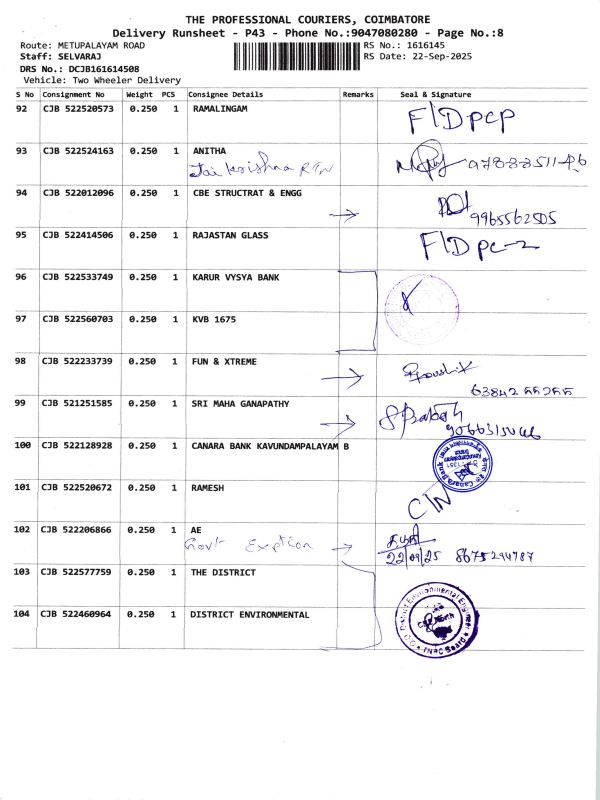 THE PROFESSIONAL COURIERS, COIMBATORE
Delivery Runsheet - P43 - Phone No.:9047080280 - Page No.:8
Route: METUPALAYAM ROAD RS No.: 1616145
Staff: SELVARAJ RS Date: 22-Sep-2025
DRS No.: DCJB161614508
Vehicle: Two Wheeler Delivery
S No Consignment No Weight PCS Consignee Details Remarks Seal & Signature
92 CJB 522520573 0.250 1 RAMALINGAM F/D PCP
93 CJB 522524163 0.250 1 ANITHA
Jai krishna
94 CJB 522012096 0.250 1 CBE STRUCTRAT & ENGG
9965562505
95 CJB 522414506 0.250 1 RAJASTAN GLASS F/D PC-2
96 CJB 522533749 0.250 1 KARUR VYSYA BANK
97 CJB 522560703 0.250 1 KVB 1675
98 CJB 522233739 0.250 1 FUN & XTREME
99 CJB 521251585 0.250 1 SRI MAHA GANAPATHY
100 CJB 522128928 0.250 1 CANARA BANK KAVUNDAMPALAYAM B
Canara Bank
101 CJB 522520672 0.250 1 RAMESH C/N
102 CJB 522206866 0.250 1 AE
Govt
22/09/25 8675294787
103 CJB 522577759 0.250 1 THE DISTRICT
104 CJB 522460964 0.250 1 DISTRICT ENVIRONMENTAL
District Environmental Engineer